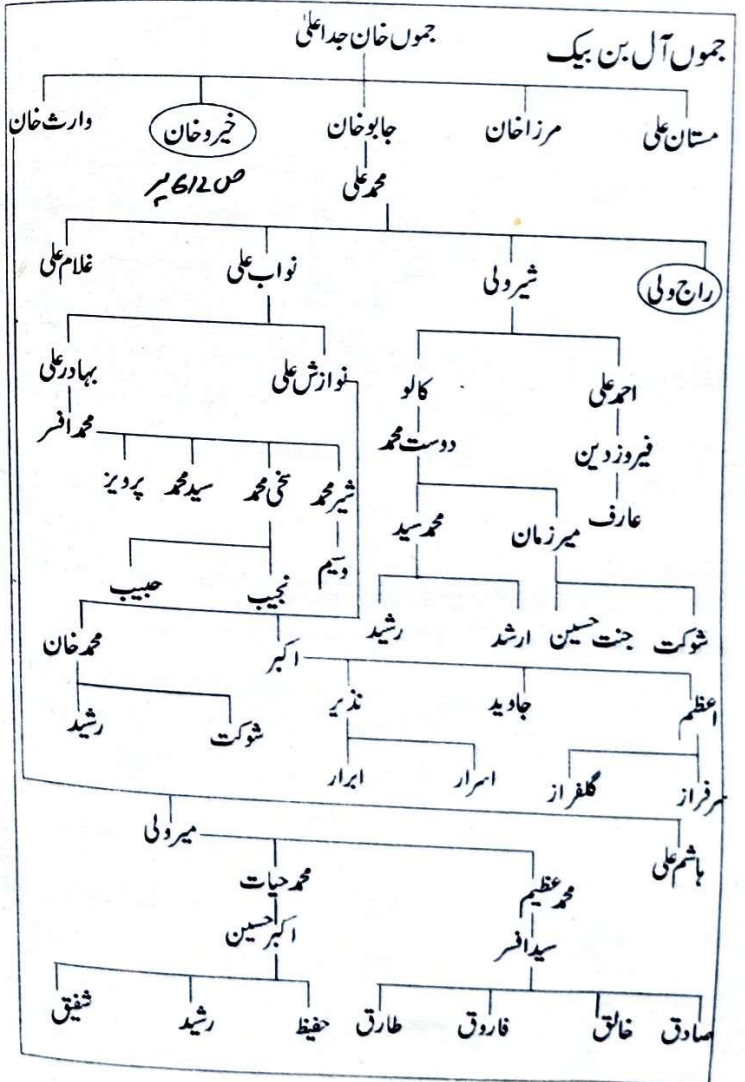 جموں آل بن بیک
جموں خان جد اعلیٰ
مستان علی مرزا خان جابو خان خیرو خان وارث خان
ص 612 پر
محمد علی
راج ولی شیر ولی نواب علی غلام علی
احمد علی کالو نوازش علی بہادر علی
فیروز دین دوست محمد محمد افسر
شیر محمد سخی محمد سید محمد پرویز
عارف میر زمان محمد سید وسیم نجیب حبیب
شوکت جنت حسین ارشد رشید
اکبر محمد خان
اعظم جاوید نذیر شوکت رشید
سرفراز گلفراز اسرار ابرار
ہاشم علی میر ولی
محمد عظیم محمد حیات
سید افسر اکبر حسین
صادق خالق فاروق طارق حفیظ رشید شفیق